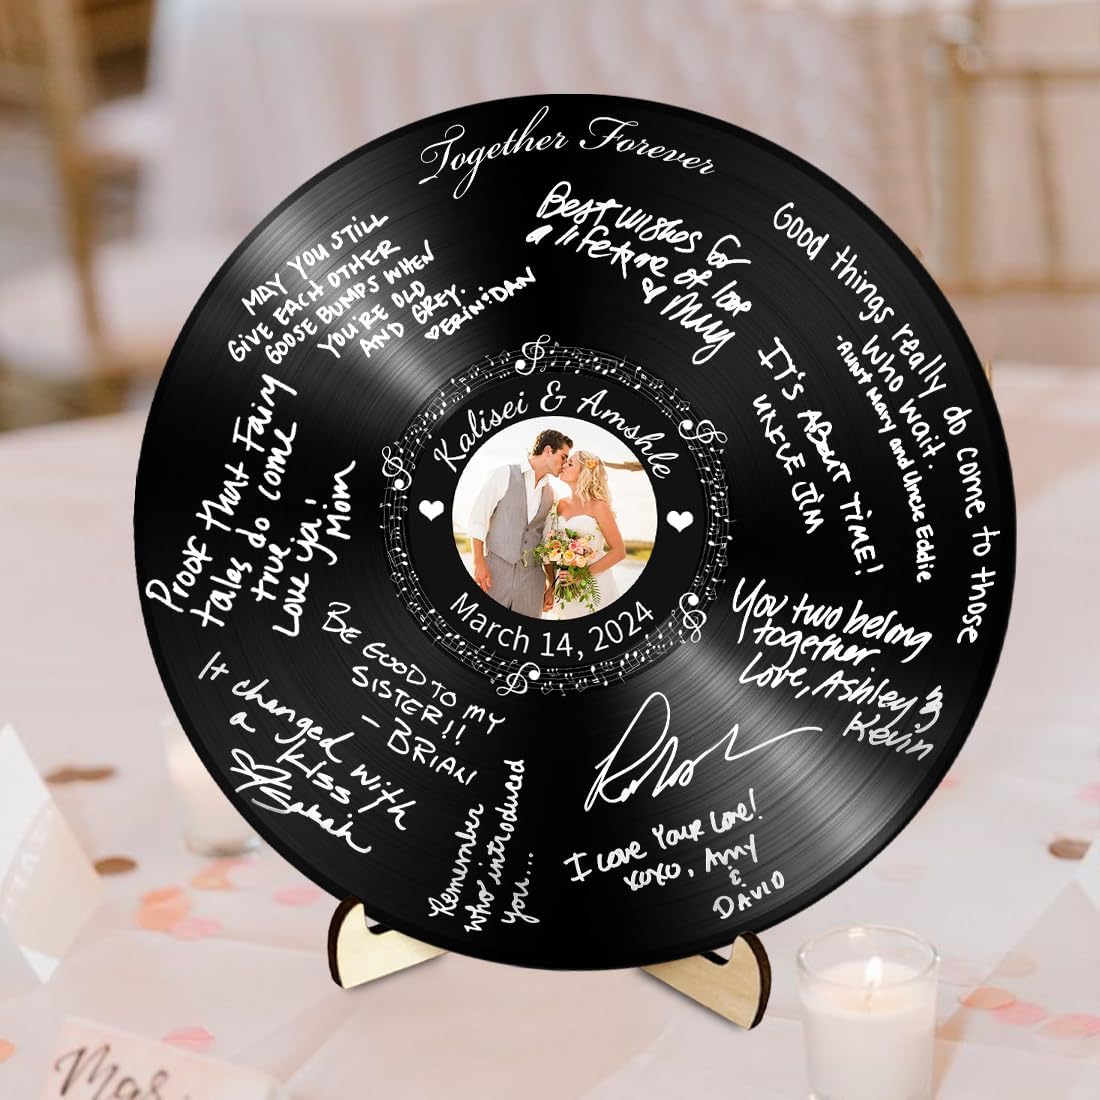 Together Forever
MAY YOU STILL
GIVE EACH OTHER
GOOSE BUMPS WHEN
YOU'RE OLD
AND GREY.
♥ERIN&DAN
Best wishes for
a lifetime of love
Good things really do come to those
who wait.
-Aunt Mary and Uncle Eddie
IT'S ABOUT TIME!
UNCLE JIM
Proof that Fairy
tales do come
true
Love ya!
Mom
Kalisei & Amshle
March 14, 2024
BE GOOD TO MY
SISTER!!
- BRIAN
You two belong
together
Love, Ashley &
Kevin
It changed with
a kiss
Sarah
Remember
who introduced
you...
I Love Your Love!
xoxo, Amy
&
DAVID